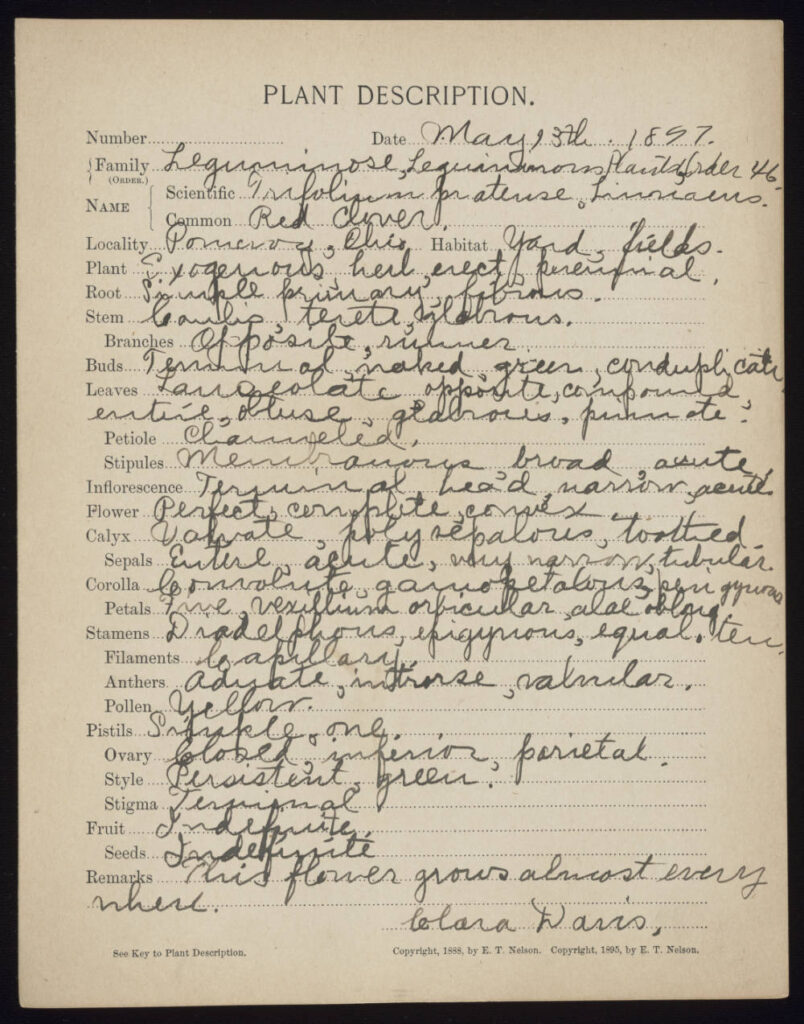 PLANT DESCRIPTION.
Number Date May 13th. 1897.
Family Leguminose, Leguminous Plants, Order 46.
(ORDER.)
NAME
Scientific Trifolium pratense, Linnaeus.
Common Red Clover.
Locality Pomeroy, Ohio Habitat Yard, fields.
Plant Exogenous, herb, erect, perennial.
Root Simple primary, fibrous.
Stem Caulis, terete, glabrous.
Branches Opposite, runner
Buds Terminal, naked, green, conduplicate,
Leaves Lanceolate opposite, compound,
entire, obtuse, glabrous, pinnate.
Petiole Channeled.
Stipules Membranous, broad, acute,
Inflorescence Terminal, head, narrow, acute.
Flower Perfect, complete, convex
Calyx Valvate, polysepalous, toothed.
Sepals Entire, acute, very narrow, tubular.
Corolla Convolute, gamopetalous, perigynous
Petals Five, vexillum orbicular, alae oblong
Stamens Diadelphous, epigynous, equal, ten,
Filaments Capillary.
Anthers Adnate, introrse, valvular.
Pollen Yellow.
Pistils Simple, one.
Ovary Closed, inferior, parietal.
Style Persistent, green.
Stigma Terminal
Fruit Indefinite.
Seeds Indefinite
Remarks This flower grows almost every
where.
Clara Davis,
See Key to Plant Description. Copyright, 1888, by E. T. Nelson. Copyright, 1895, by E. T. Nelson.